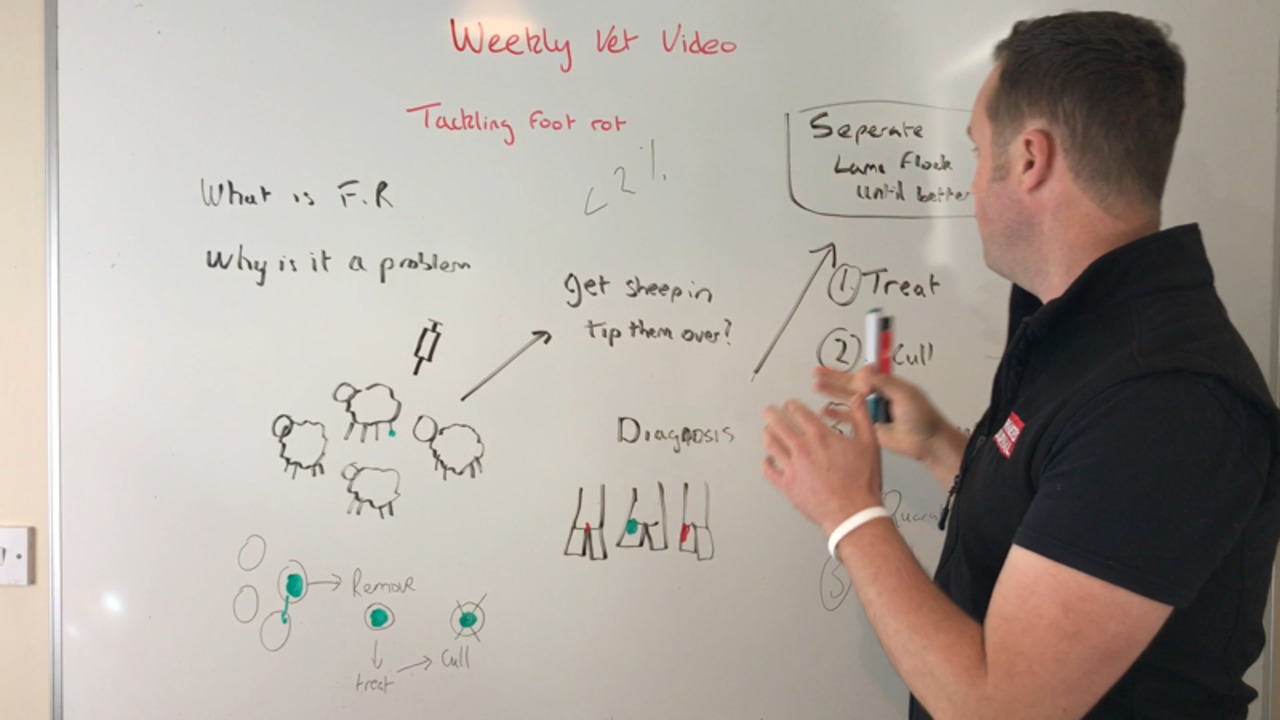 Weekly Vet Video
Tackling Foot rot
< 2%
What is F.R
Why is it a problem
get sheep in
tip them over?
Diagnosis
Seperate
Lame Flock
until better
1. Treat
2 Cull
5
Remove
treat
Cull